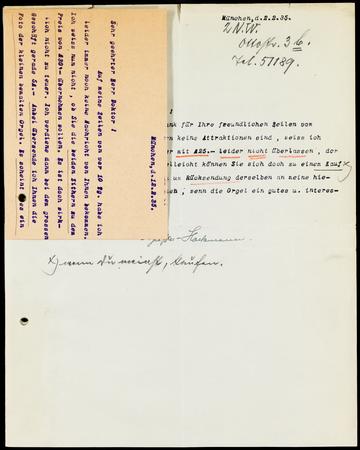 München,d.12.2.35.
Sehr geehrter Herr Doktor !
Auf meine Zeilen vom vor 10 Tg. habe ich
leider immer noch keine Nachricht von Ihnen bekommen.
Ich weiss nun nicht , ob Sie die beiden Zithern zu dem
Preis von 125.- übernehmen wollen. Es ist doch wirk-
lich nicht zu teuer. Ich verdiene dann bei dem grossen
Geschäft gerade 5.- Anbei übersende ich Ihnen die
Foto der kleinen bemalten Orgel. Es scheint ein
München,d.2.2.35.
2 N.W.
Ottostr. 3 b.
Tel. 57189.
!
ank für Ihre freundlichen Zeilen vom
ern keine Attraktionen sind , weiss ich
er mit 125.- leider nicht überlassen , der
elleicht können Sie sich doch zu einem Kauf x)
um Rücksendung derselben an meine hie-
, wenn die Orgel ein gutes u. interes-
x) wenn du meinst, kaufen.